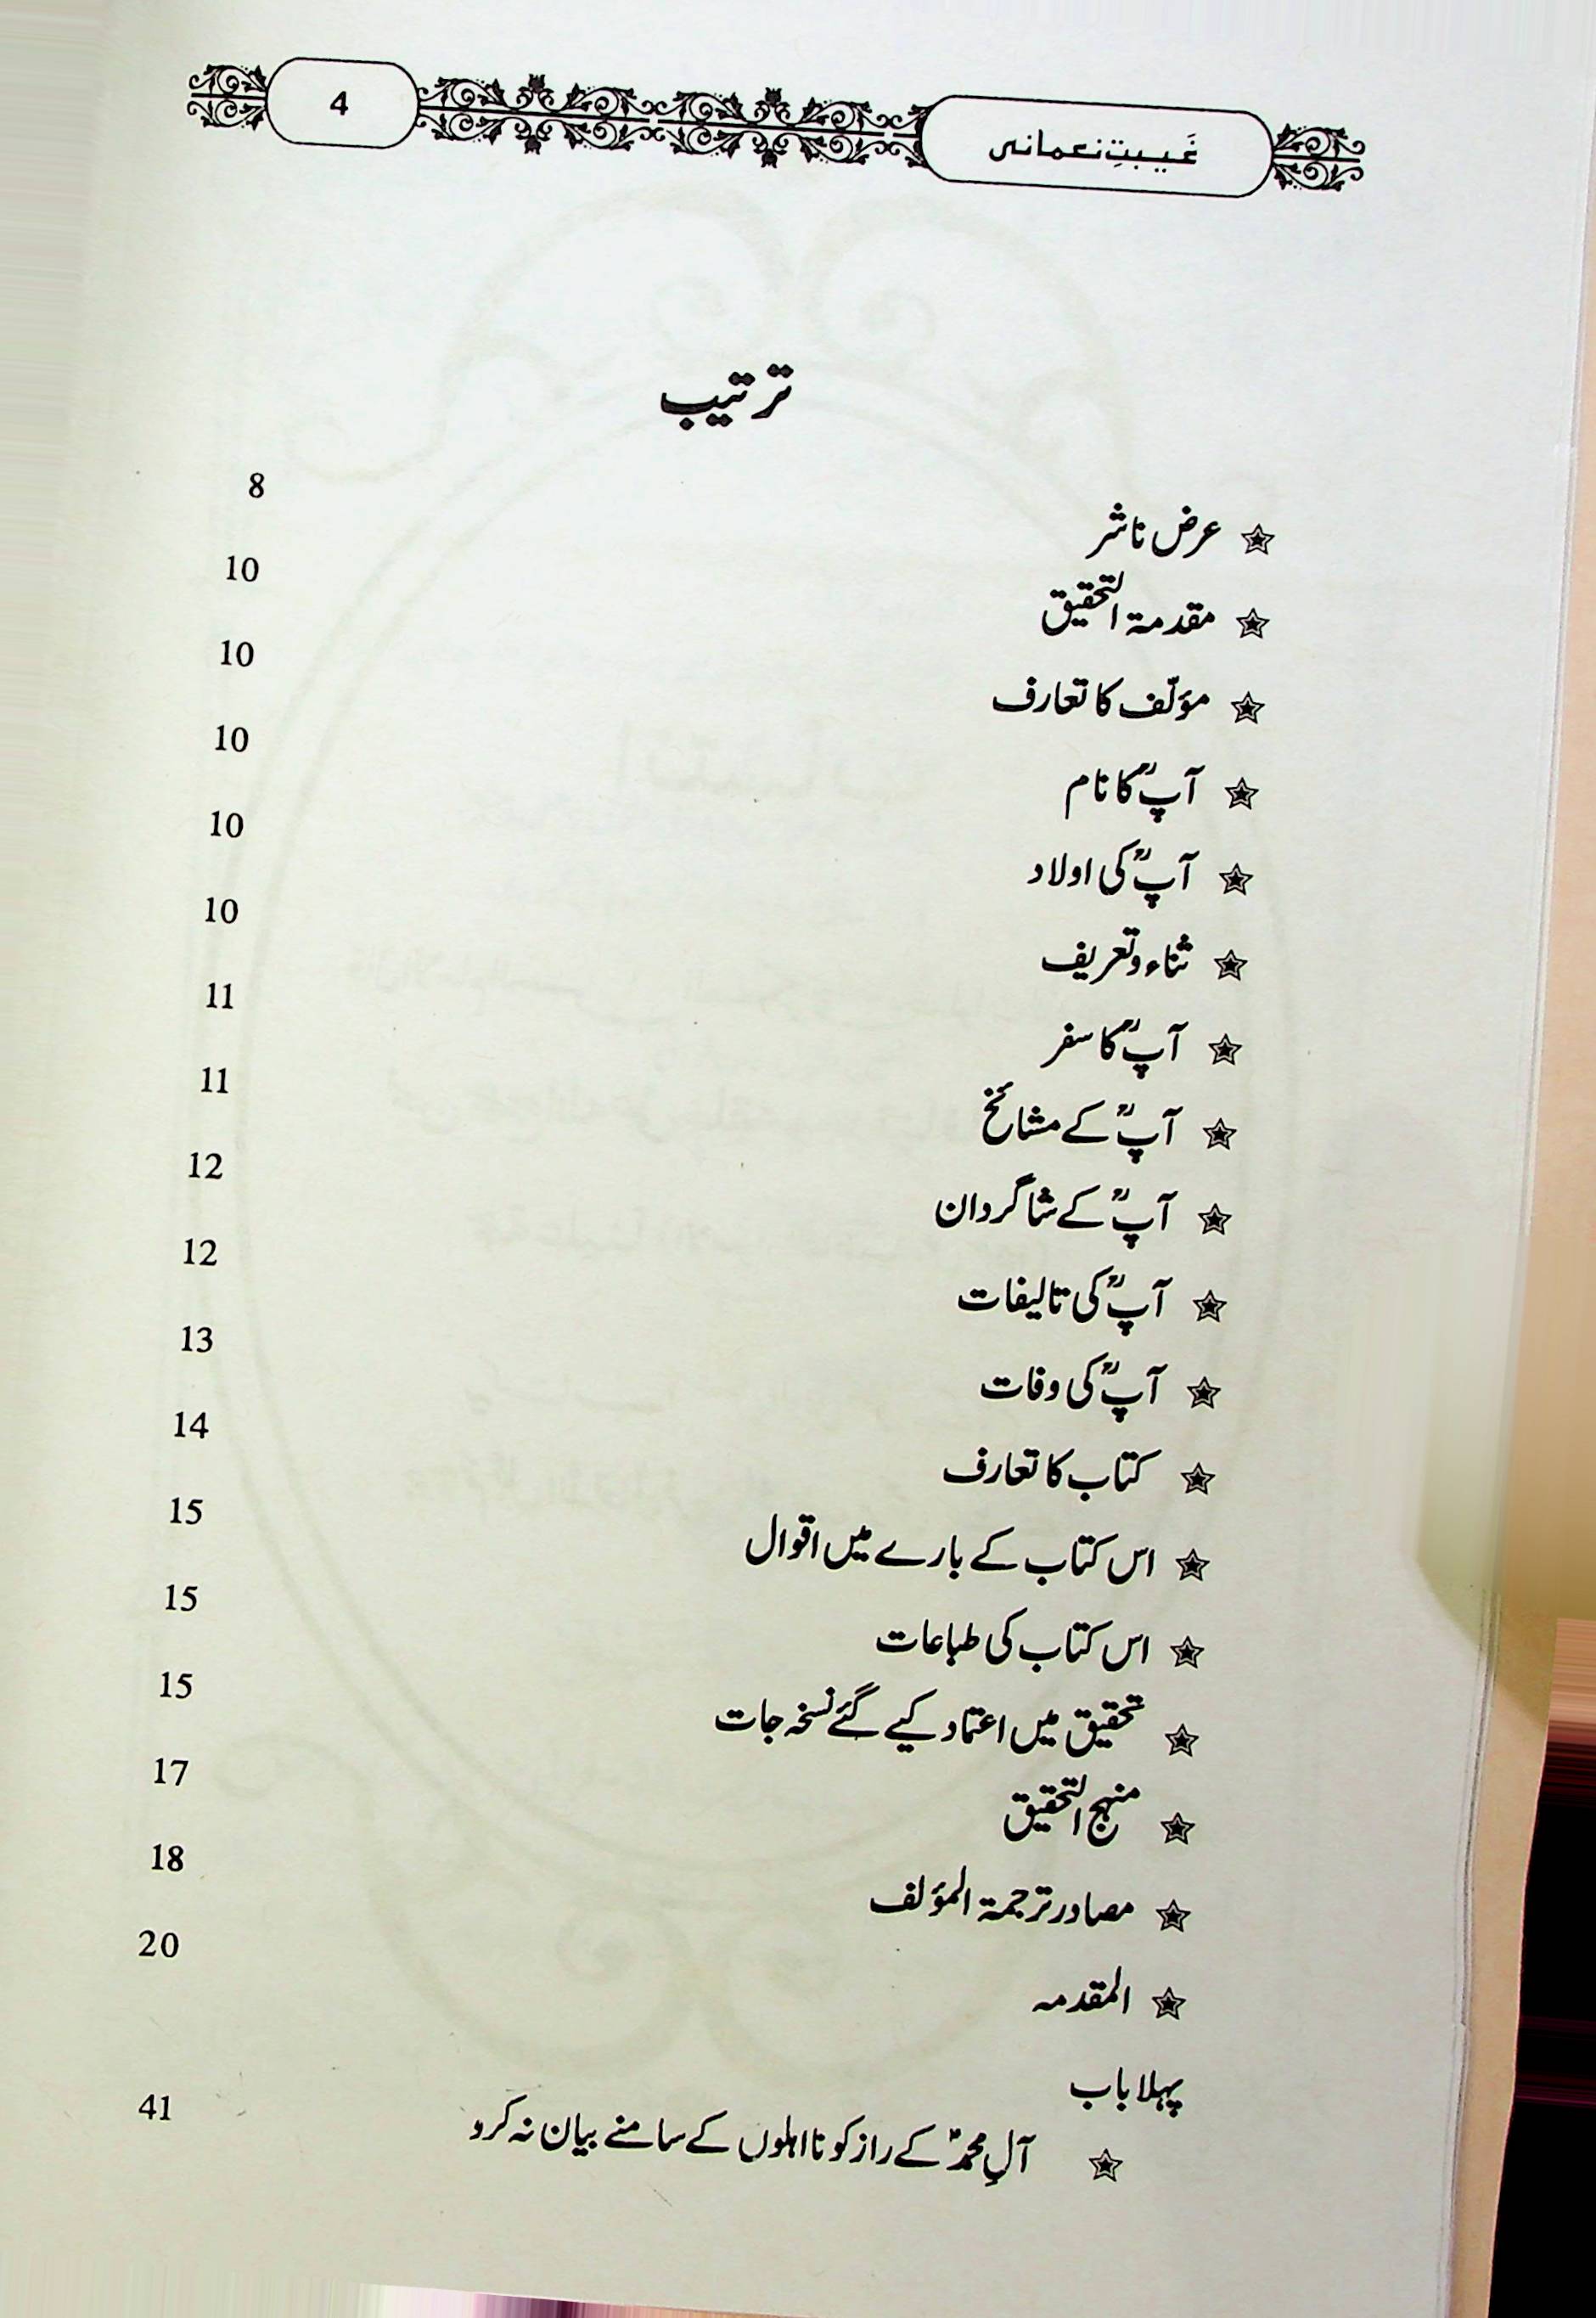 غَیبتِ نعمانی 4
ترتیب
☆ عرض ناشر 8
☆ مقدمۃ التحقیق 10
☆ مؤلّف کا تعارف 10
☆ آپؒ کا نام 10
☆ آپؒ کی اولاد 10
☆ ثناء و تعریف 10
☆ آپؒ کا سفر 11
☆ آپؒ کے مشائخ 11
☆ آپؒ کے شاگردان 12
☆ آپؒ کی تالیفات 12
☆ آپؒ کی وفات 13
☆ کتاب کا تعارف 14
☆ اس کتاب کے بارے میں اقوال 15
☆ اس کتاب کی طباعات 15
☆ تحقیق میں اعتماد کیے گئے نسخہ جات 15
☆ منہج التحقیق 17
☆ مصادر ترجمۃ المؤلف 18
☆ المقدمہ 20
پہلا باب
☆ آلِ محمدؐ کے راز کو نااہلوں کے سامنے بیان نہ کرو 41